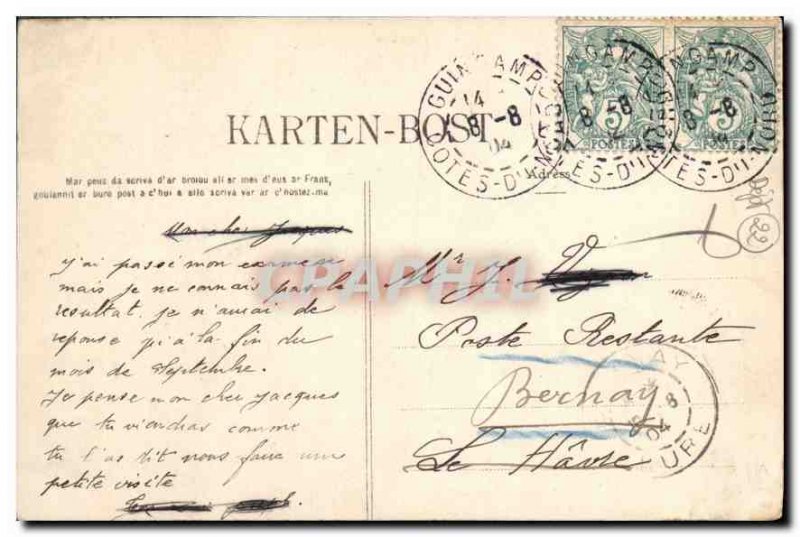 GUINGAMP
14
8 -8
04
COTES-DU-NORD
5
POSTES
5
POSTES
KARTEN-BOST
Mar peus da scriva d'ar broiou all er mes d'eus ar Frans,
goulennit ar buro post a c'hui a allo scriva var ar c'hostez-ma
Adresse
Mon cher Jacques
J'ai passé mon examen
mais je ne connais pas le
resultat. je n'aurai de
reponse qu'à la fin du
mois de Septembre.
Je pense mon cher Jacques
que tu viendras comme
tu l'as dit nous faire une
petite visite
Mr J.
Poste Restante
Bernay
Le Hâvre
8
04
EURE
22
CPARAPHIL